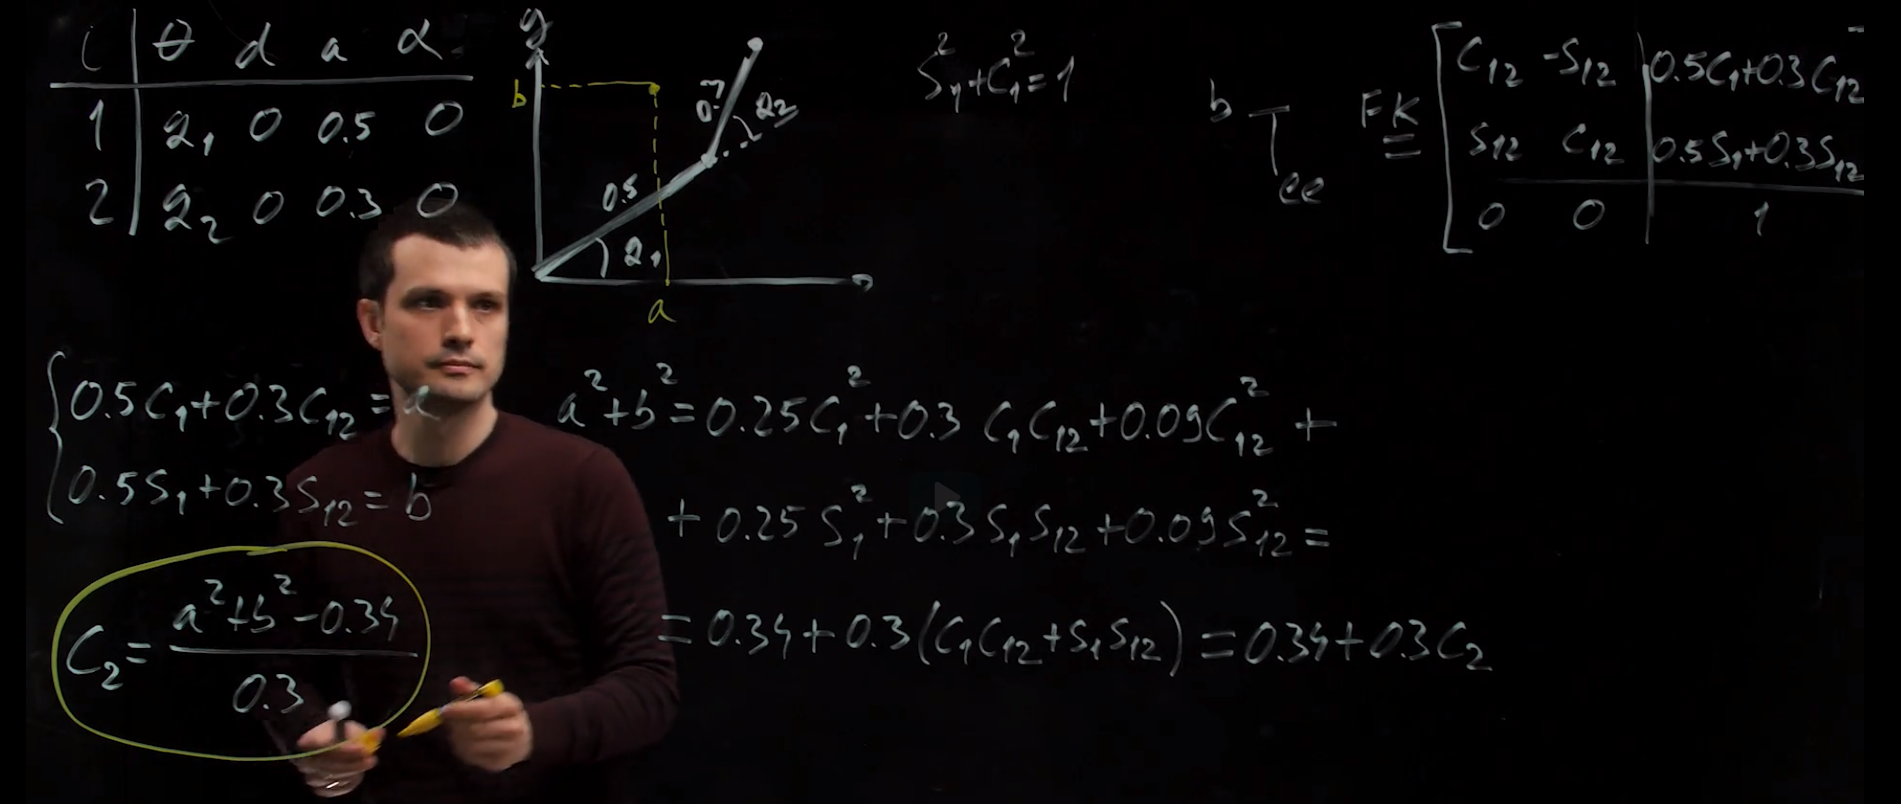 i θ d a α
1 q₁ 0 0.5 0
2 q₂ 0 0.3 0
y
b
0.5
q₁
q₂
a
S₁²+C₁²=1
b T ee FK = [C₁₂ -S₁₂ | 0.5C₁+0.3C₁₂
S₁₂ C₁₂ | 0.5S₁+0.3S₁₂
0 0 | 1
{ 0.5C₁+0.3C₁₂=a
0.5S₁+0.3S₁₂=b
C₂ = (a²+b²-0.34)/0.3
a²+b²=0.25C₁²+0.3 C₁C₁₂+0.09C₁₂² +
+0.25S₁²+0.3S₁S₁₂+0.09S₁₂²=
=0.34+0.3(C₁C₁₂+S₁S₁₂)=0.34+0.3C₂